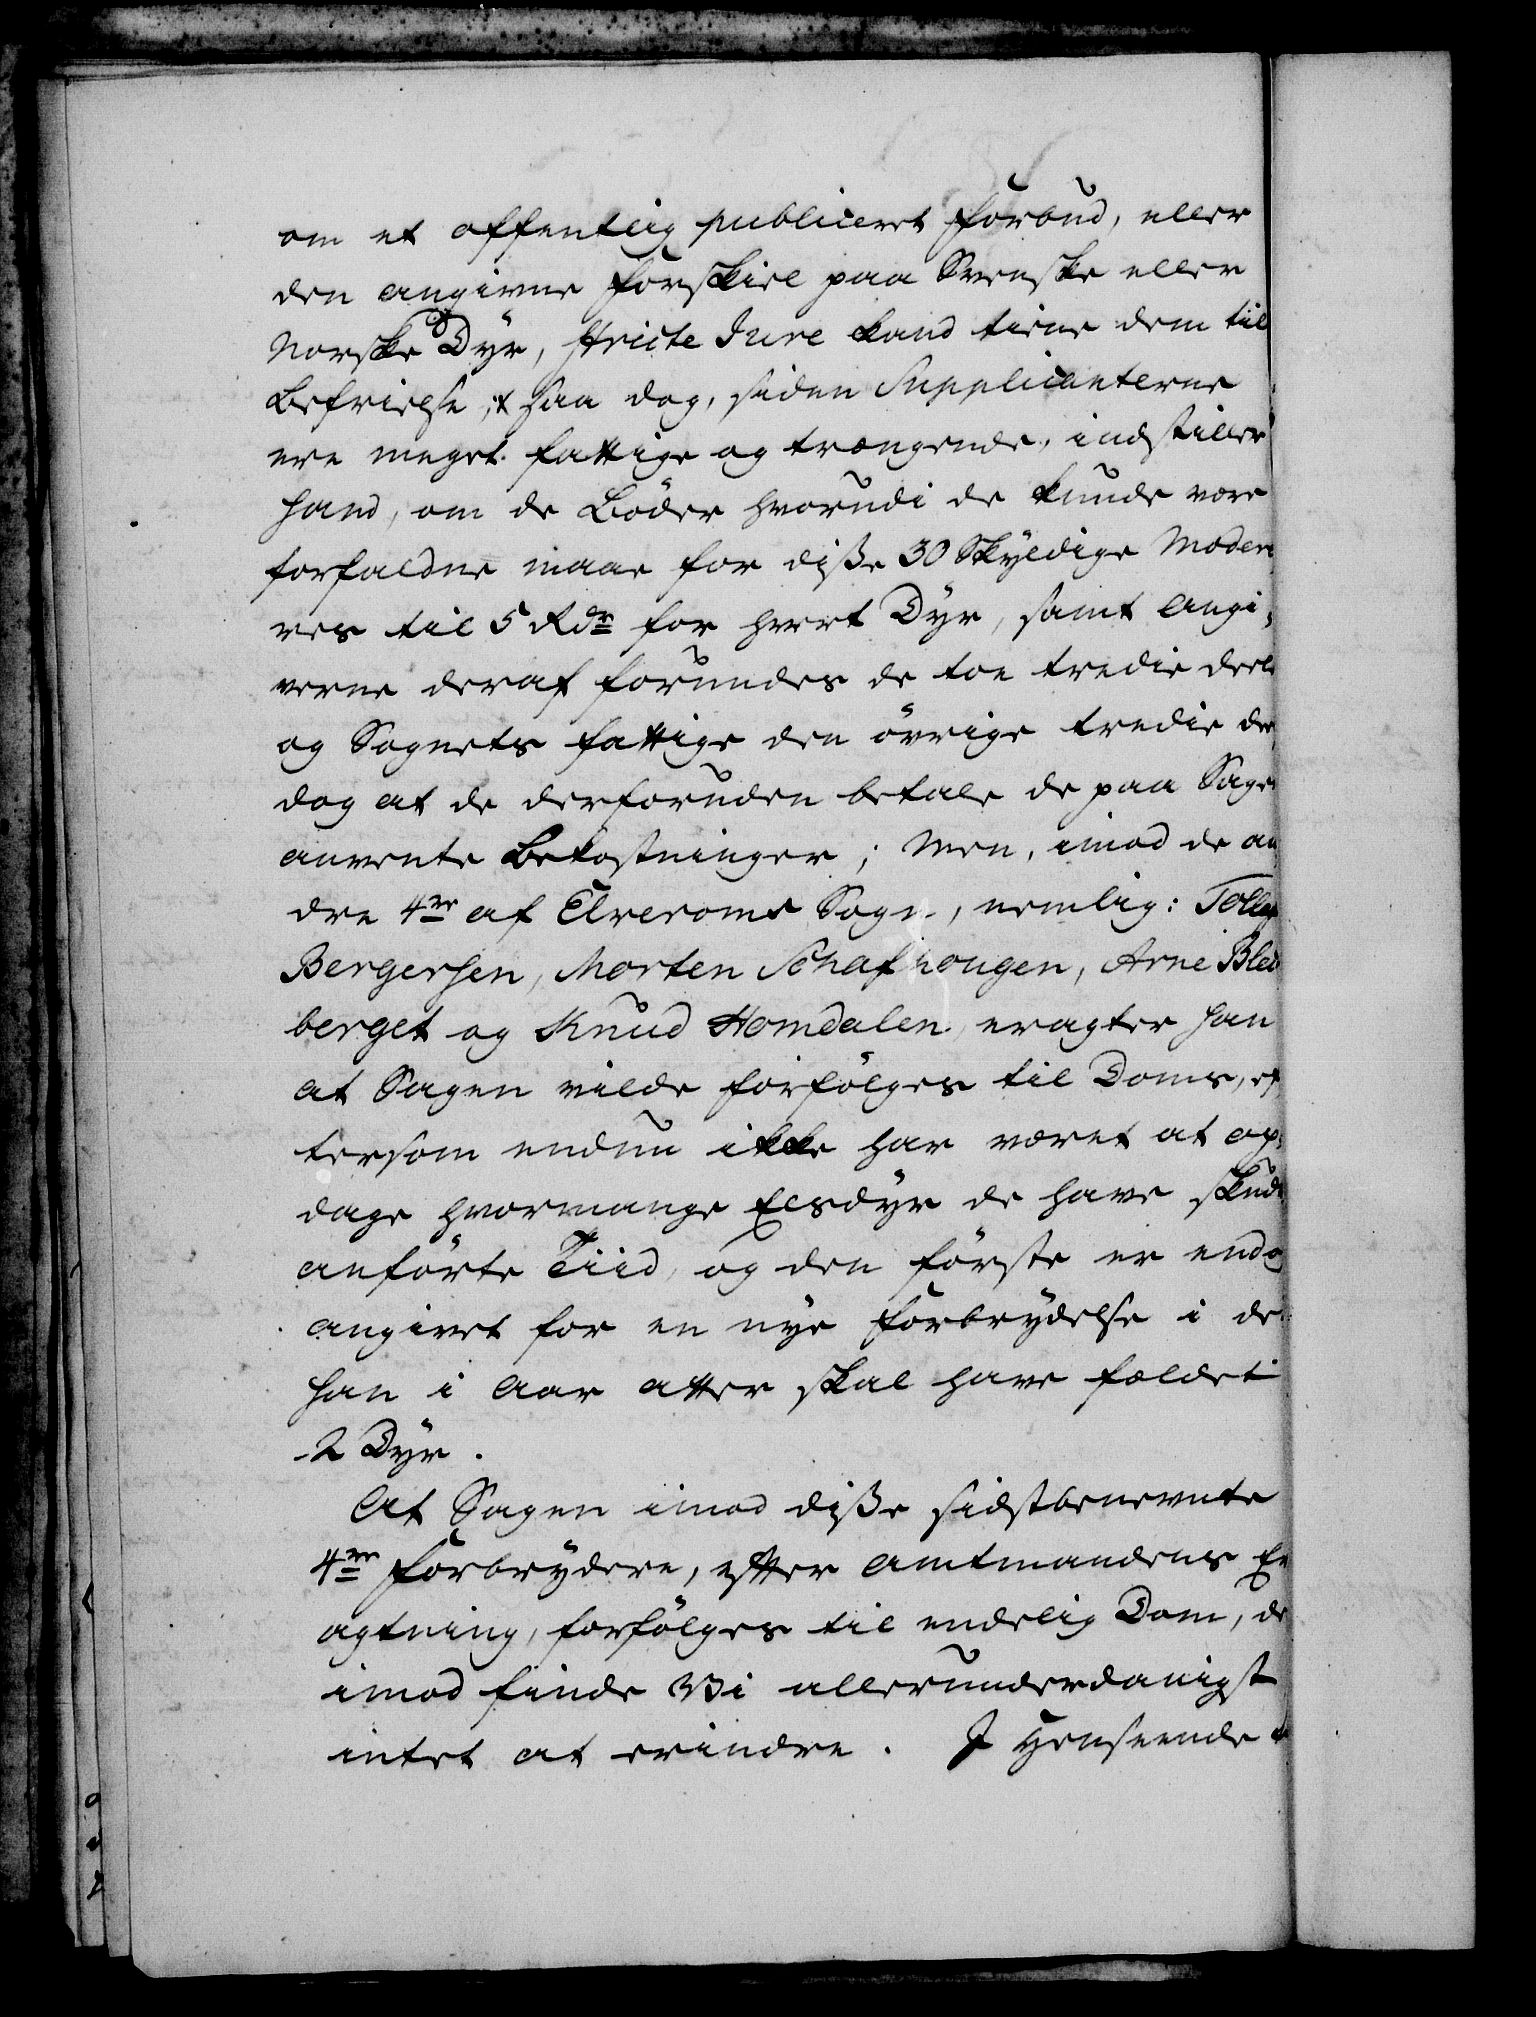 om et offentlig publiceret Forbud, eller
den angivne Forskiel paa Svenske eller
Norske Dyr, stricte Jure kand tiene dem til
Befrielse, saa dog, siden Supplicanterne
ere meget fattige og trængende, indstiller
hand, om de Bøder hvorudi de kunde være
forfaldne maae for diße 30 Skyldige Modere
res til 5 Rdr for hvert Dyr, samt Angi,
verne deraf forundes de toe tredie deele
og Sognets fattige den øvrige tredie deel
dog at de derforuden betale de paa Sagen
anvente Bekostninger; Men, imod de an
dre 4re af Elveroms Sogn, nemlig: Tollef
Bergersen, Morten Schafhougen, Arne Bled
berget og Knud Homdalen, eragter han
at Sagen vilde forfølges til Doms, ef
tersom endnu ikke har været at op,
dage hvormange Elsdyr de have skudt
anførte Tiid, og den første er endog
angivet for en nye Forbrydelse i det
han i Aar atter skal have fældet
2 Dyr.
At Sagen imod diße sidstbenevnte
4re Forbrydere, efter Amtmandens Er
agtning, forfølges til endelig Dom, der
imod finde Vi allerunderdanigst
intet at erindre. J Henseende